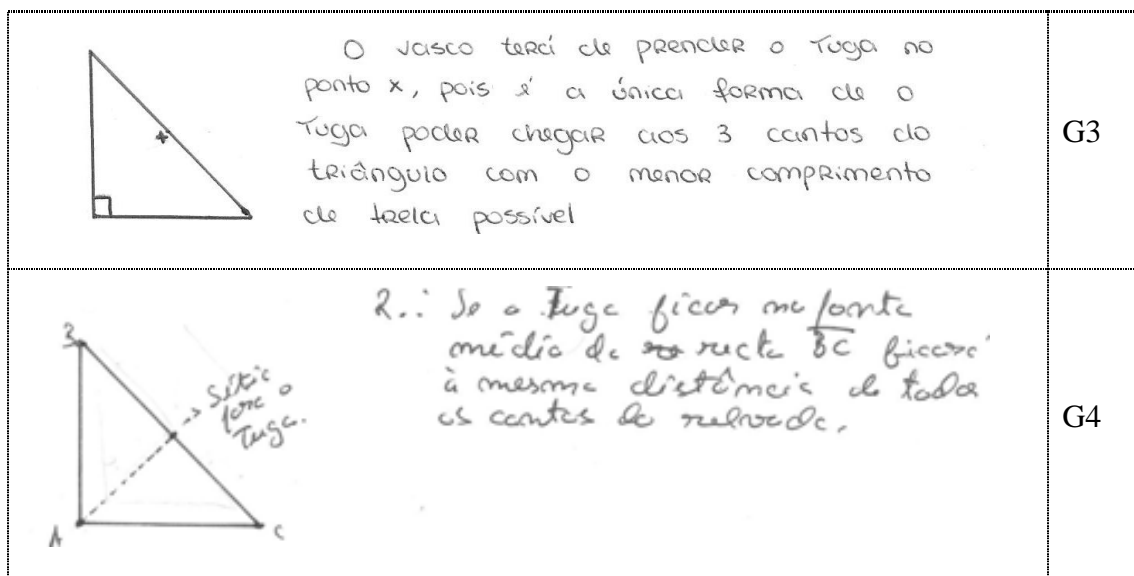 O Vasco terá de prender o Tuga no
ponto x, pois é a única forma de o
Tuga poder chegar aos 3 cantos do
triângulo com o menor comprimento
de trela possível
x
G3
2.: Se o Tuga ficar no ponto
médio da recta BC ficará
à mesma distância de todos
os cantos do relvado.
B
-> Sítio
para o
Tuga.
A
C
G4